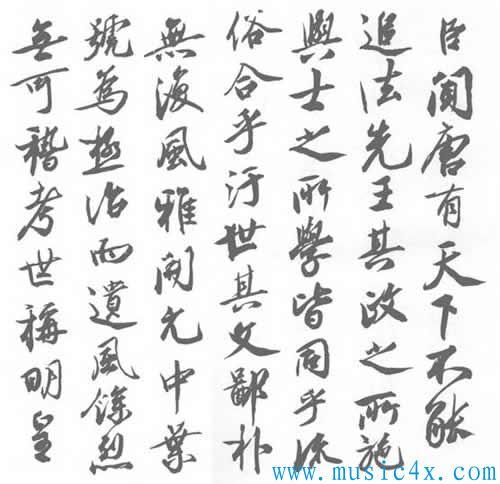 臣聞唐有天下不能
追法先王其政之所施
與士之所學皆同乎流
俗合乎汙世其文鄙朴
無復風雅開元中葉
號為極治而遺風餘烈
無可稽考世稱明皇
www.music4x.com